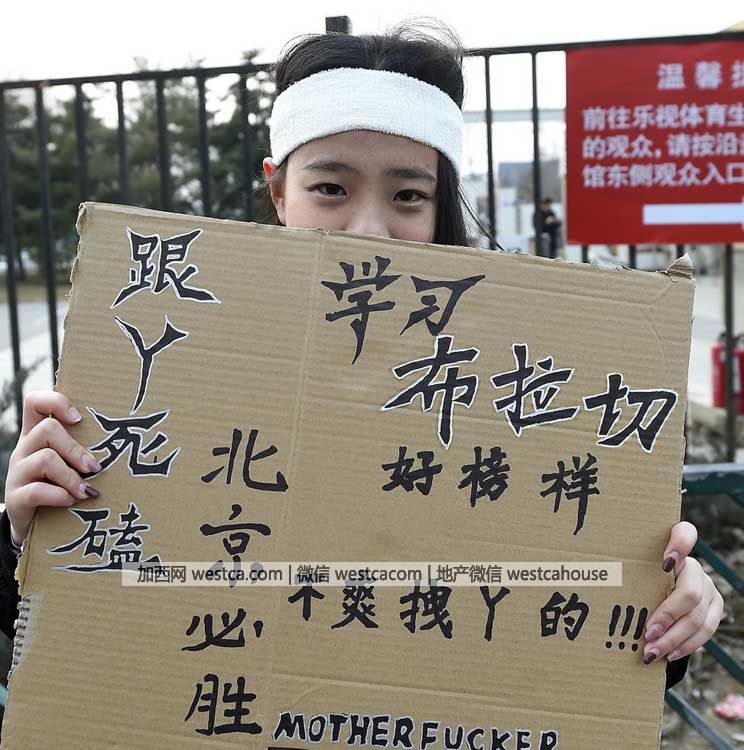 温馨
前往乐视体育生
的观众,请按沿
馆东侧观众入口
跟丫死磕
北京必胜
学习
布拉切
好榜样
不爽拽丫的!!!
MOTHERFUCKER
加西网 westca.com | 微信 westcacom | 地产微信 westcahouse